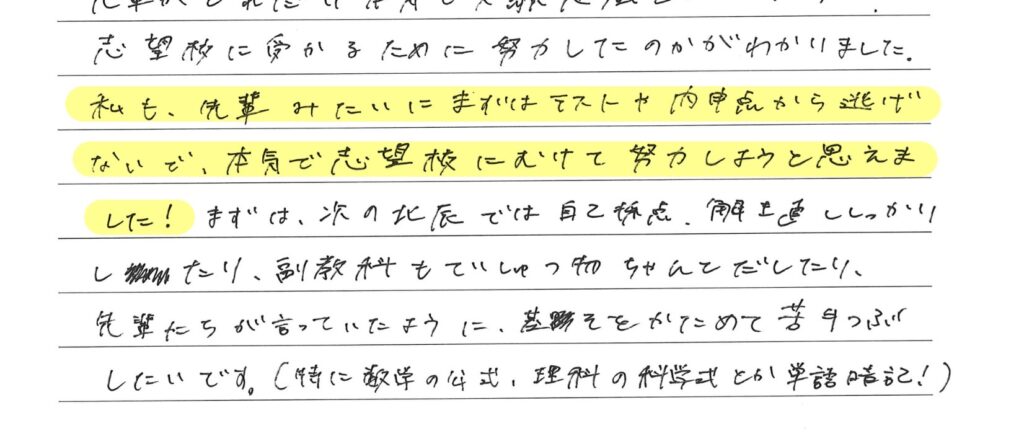 志望校に受かるために努力してたのかがわかりました。
私も、先輩みたいにまずはテストや内申点から逃げ
ないで、本気で志望校にむけて努力しようと思えま
した！まずは、次の北辰では自己採点、解き直ししっかり
したり、副教科もていしゅつ物ちゃんとだしたり、
先輩たちが言っていたように、基そをかためて苦手つぶ
したいです。(特に数学の公式、理科の科学式とか単語暗記！)